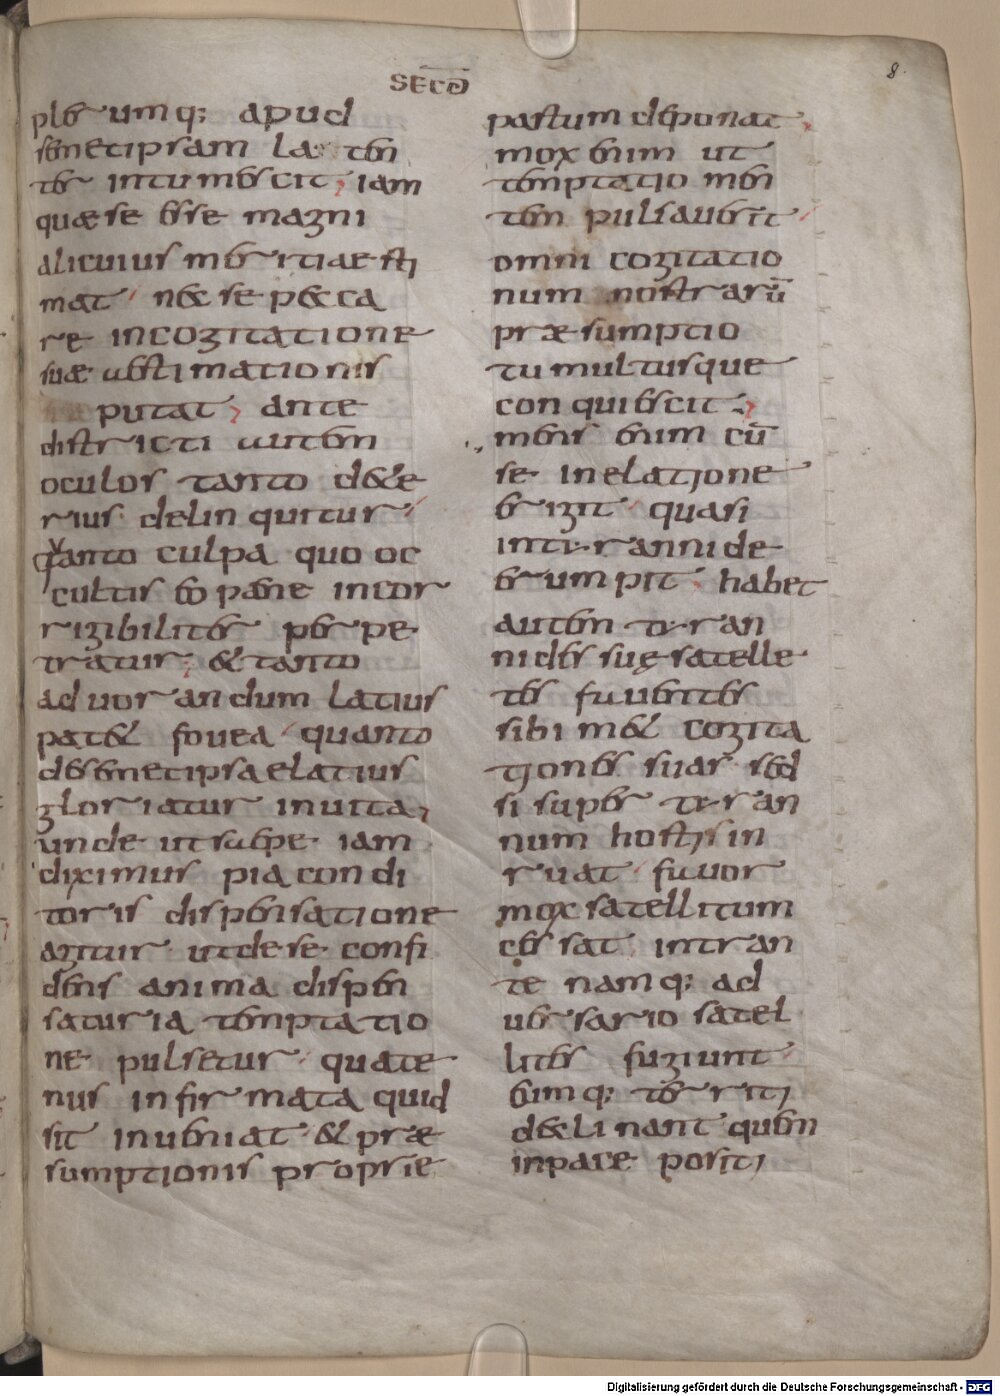 SECD̄
8.
plerumq; apud
semetipsam laten
ter intumescit; iam
quæ se esse magni
alicuius meritiaesti
mat nec se pecca
re incogitatione
suæ aestimationis
putat; ante
districti autem
oculos tanto dete
rius delinquitur
tanto culpa quo oc
cultis eo pane incor
rigibiliter perpe
tratur; et tanto
ad uorandum latius
patet fouea quanto
desemetipsa elatius
gloriatur inuita;
unde ut sæpe iam
diximus pia condi
toris dispensatione
agitur ut de se confi
dens anima dispen
saturia temptatio
ne pulsetur quate
nus infirmata quid
sit inueniat et præ
sumptionis proprie
pastum deponat;
mox enim ut
temptatio men
tem pulsauerit
omni cogitatio
num nostrarū
præsumptio
tumultusque
conquiescit;
mens enim cū
se inelatione
erigit quasi
intyrannide
erumpit habet
autem tyran
nides suę satelle
tes fauentes
sibimet cogita
tiones suas sed
si super tyran
num hostis in
ruat fauor
mox satellitum
cessat intran
te namq; ad
uersario satel
lites fugiunt
eumq; territi
declinant quem
inpace positi
Digitalisierung gefördert durch die Deutsche Forschungsgemeinschaft - DFG